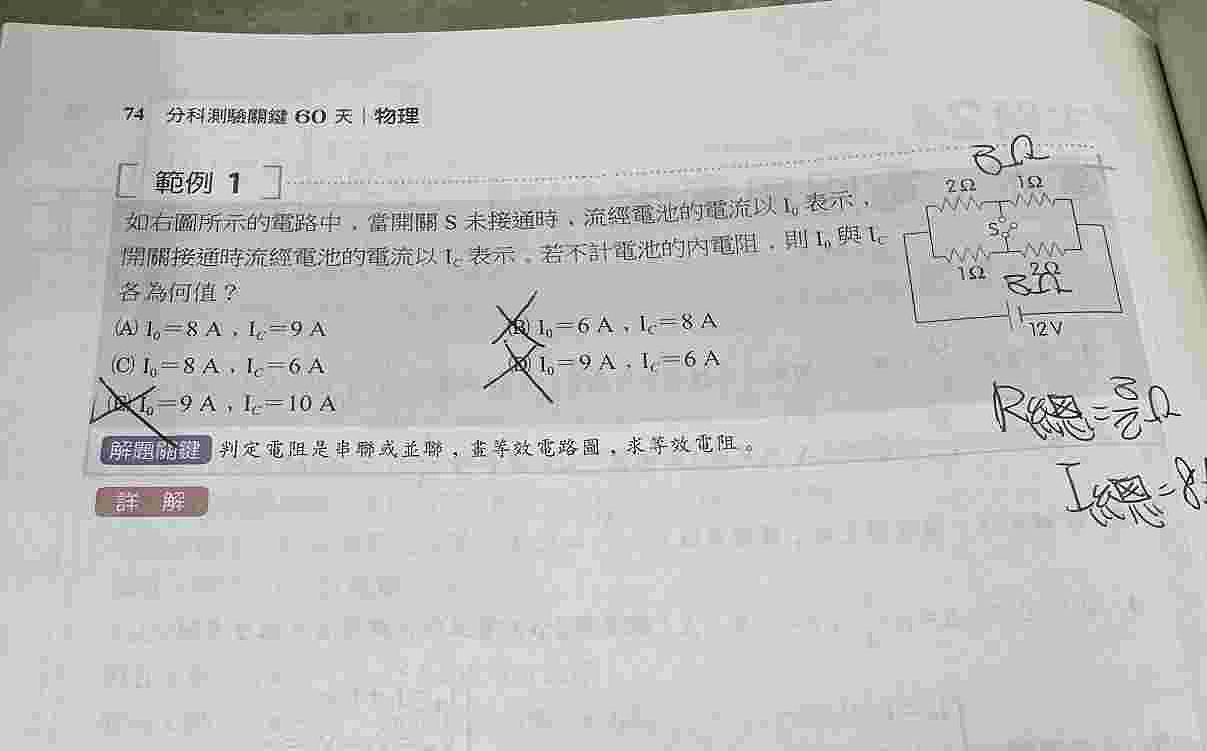 74 分科測驗關鍵 60 天｜物理
範例 1
如右圖所示的電路中，當開關 S 未接通時，流經電池的電流以 I₀ 表示，
開關接通時流經電池的電流以 I_C 表示。若不計電池的內電阻，則 I₀ 與 I_C
各為何值？
(A) I₀＝8 A，I_C＝9 A
(B) I₀＝6 A，I_C＝8 A
(C) I₀＝8 A，I_C＝6 A
(D) I₀＝9 A，I_C＝6 A
(E) I₀＝9 A，I_C＝10 A
3Ω
2Ω 1Ω
S
1Ω 2Ω
3Ω
12V
R總=3/2Ω
I總=8
解題關鍵 判定電阻是串聯或並聯，畫等效電路圖，求等效電阻。
詳 解